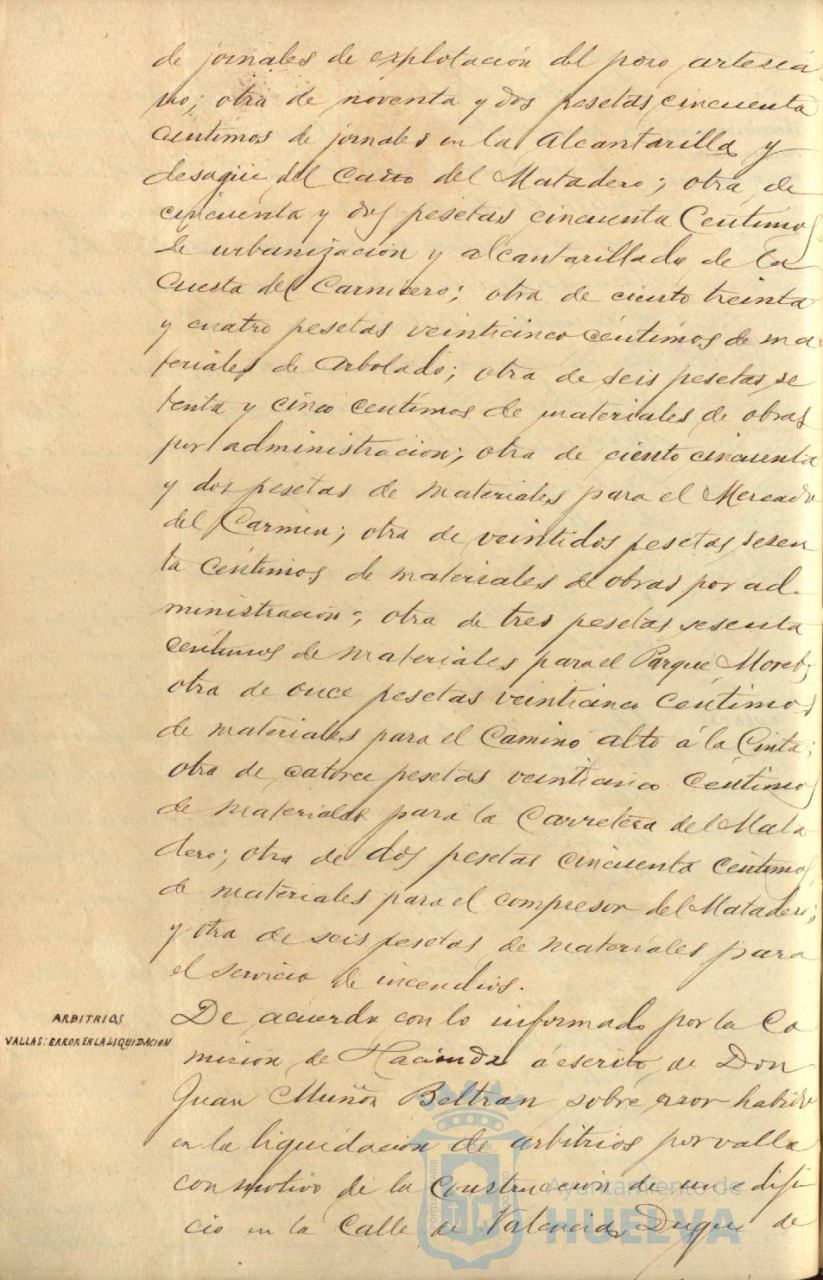 de jornales de explotación del pozo artesia-
no; otra de noventa y dos pesetas cincuenta
céntimos de jornales en la Alcantarilla y
desagüe del Caño del Matadero; otra de
cincuenta y dos pesetas cincuenta Centimos
de urbanización y alcantarillado de la
Cuesta del Carnicero; otra de ciento treinta
y cuatro pesetas veinticinco céntimos de ma
teriales de Arbolado; otra de seis pesetas se
tenta y cinco centimos de materiales de obras
por administracion; otra de ciento cincuenta
y dos pesetas de materiales para el Mercado
del Carmen; otra de veintidos pesetas sesen
ta céntimos de materiales de obras por ad-
ministración; otra de tres pesetas sesenta
centimos de materiales para el Parque Moret;
otra de once pesetas veinticinco Centimos
de materiales para el Camino alto á la Cinta;
otra de catorce pesetas veinticinco Céntimos
de materiales para la Carretera del Mata
dero; otra de dos pesetas cincuenta céntimos
de materiales para el compresor del Matadero;
y otra de seis pesetas de materiales para
el servicio de incendios.
ARBITRIOS
VALLAS: ERROR EN LA LIQUIDACION
De acuerdo con lo informado por la Co
mision de Hacienda á escrito de Don
Juan Muñoz Beltran sobre error habido
en la liquidación de arbitrios por valla
con motivo de la construcción de un edifi
cio en la Calle de Valencia, Duque de
Ayuntamiento de
HUELVA